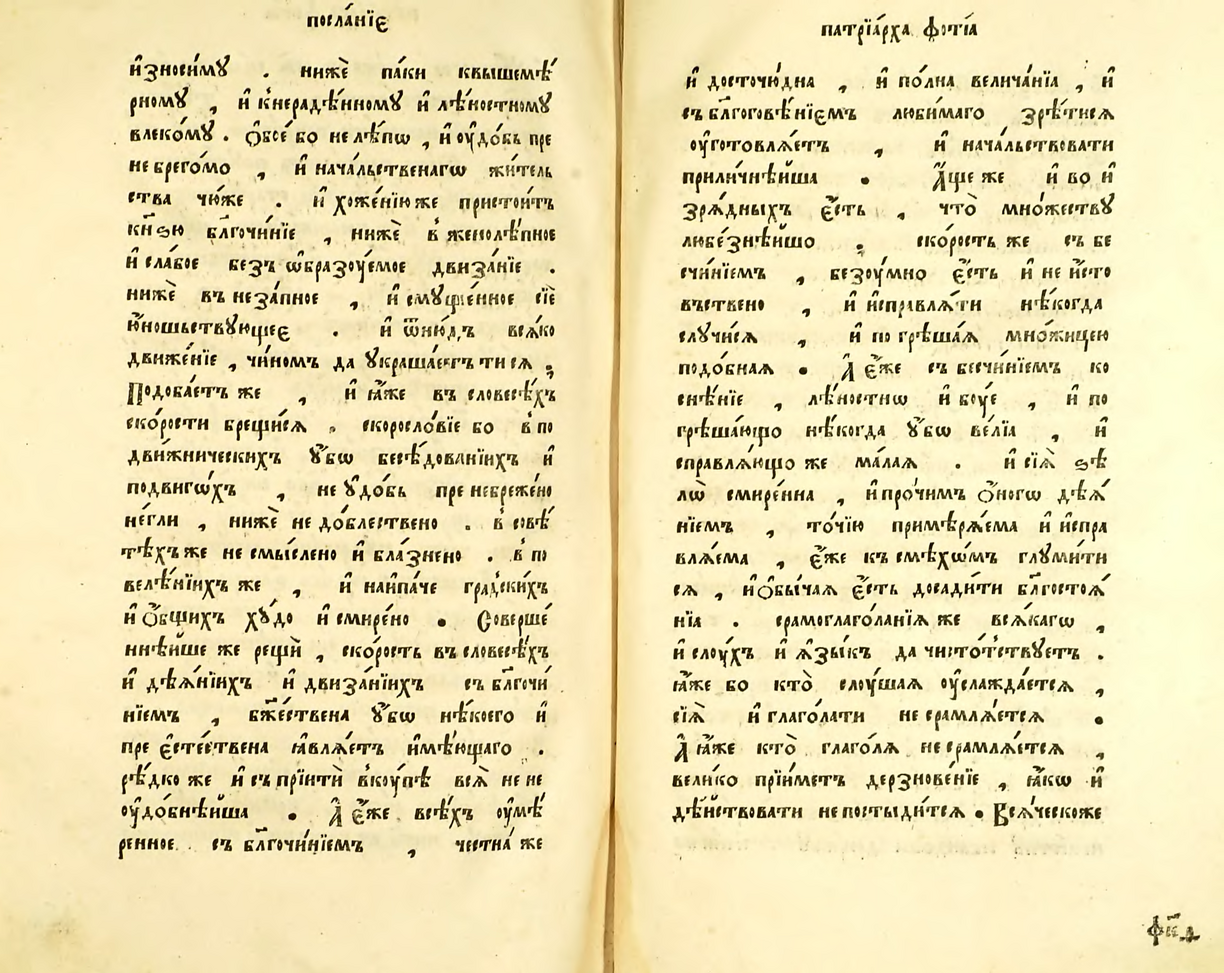 посла́нїє
и҆зноси́мꙋ . нижѐ па́ки квышемѣ́
рномꙋ , и҆ кнерадѣ́нномꙋ и҆ лѣ́ностномꙋ
влеко́мꙋ . ѻ҆бсе́ бо не лѣ́пѡ , и҆ оу҆до́бь пре
не брего́мо , и҆ нача́льственагѡ жи́тель
ства чю́же . и҆ хоже́нїю же присто́итъ
кн҃ѕю бл҃гочи́нїе , нижѐ в женолѣ́пное
и҆ сла́бое безъ ѡ҆бразоу́емое двиза́нїе .
нижѐ въ неза́пное , и҆ смꙋще́нное сїѐ
ю҆́ношьствꙋющеє . и҆ ѿню́дъ вся́ко
движе́нїе , чи́номъ да ᲂукраша́етъ ти сѧ ,
Подоба́етъ же , и҆ ꙗ҆́же въ словесѣ́хъ
ско́рости брещи́сѧ . скоросло́вїе бо в по
движни́ческихъ ᲂу҆́бѡ бесѣ́дованїихъ и҆
подвиго́хъ , не ᲂу҆до́бь пре небреже́но
не́гли , нижѐ не до́блествено . в совѣ́
тѣхъ же не смы́слено и҆ бла́знено . в по
велѣ́нїихъ же , и҆ наипа́че гра́дскихъ
и҆ ѻ҆́бщихъ хꙋ́до и҆ смире́но . Соверше́
ннѣише же рещѝ , ско́рость въ словесѣ́хъ
и҆ дѣѧ́нїихъ и҆ двиза́нїихъ съ бл҃гочи́
нїемъ , бж҃е́ствена ᲂу҆́бѡ нѣ́коего и҆
пре є҆сте́ствена ꙗ҆влѧ́етъ и҆мѣ́ющаго .
рѣ́дко же и҆ съ прїитѝ вкꙋ́пѣ всѧ̀ не не
оу҆до́бнѣиша . А҆ є҆́же всѣ́хъ оу҆мѣ́
ренное . съ бл҃гочи́нїемъ , честна́ же
патрїа́рха фо́тїа
и҆ досточю́дна , и҆ по́лна велича́нїа , и҆
съ бл҃гоговѣ́нїємъ люби́маго зрѣ́тисѧ
оу҆готовлѧ́етъ , и҆ нача́льствовати
прили́чнѣиша . А҆́ще же и҆ во и҆
зрѧ́дныхъ є҆́сть , что̀ мно́жествꙋ
любе́знѣишо , ско́рость же съ бе
счи́нїемъ , безоу́мно є҆́сть и҆ не и҆́сто
въствено , и҆ и҆справлѧ́ти нѣ́когда
случи́сѧ , и҆ по грѣша́ѧ мно́жицею
подо́бнаѧ . А҆ є҆́же съ бесчи́нїемъ ко
снѣ́нїе , лѣ́ностнѡ и҆ бо́уе , и҆ по
грѣша́ющо нѣ́когда ᲂу҆́бѡ ве́лїа , и҆
справлѧ́ющо же ма́лаѧ . и҆ сїѧ̀ ѕѣ
лѡ̀ смире́нна , и҆ про́чимъ ѻ҆́ногѡ дѣѧ́
нїемъ , то́чїю примѣрѧ́ема и҆ и҆спра
влѧ́ема , є҆́же къ смѣхѡ́мъ глꙋми́ти
сѧ , и҆ ѻ҆бы́чаѧ є҆́сть досади́ти бл҃госто́ѧ
нїа . срамоглаго́ланїѧ же всѧ́кагѡ ,
и҆ слоу́хъ и҆ ѧ҆зы́къ да чисто́тствꙋетъ .
ꙗ҆́же бо кто̀ слоу́шаѧ оу҆слажда́етсѧ ,
сїѧ̀ и҆ глаго́лати не срамлѧ́етсѧ .
А҆ ꙗ҆́же кто̀ глаго́лѧ не срамлѧ́етсѧ ,
вели́ко прїи́метъ дерзнове́нїе , ꙗ҆́кѡ и҆
дѣ́иствовати не постыди́тсѧ . Всѧ́ческо же
фк҃д